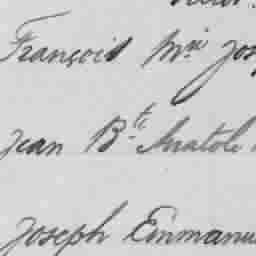 François Mie Jos
Jean Bte Anatole
Joseph Emmanu